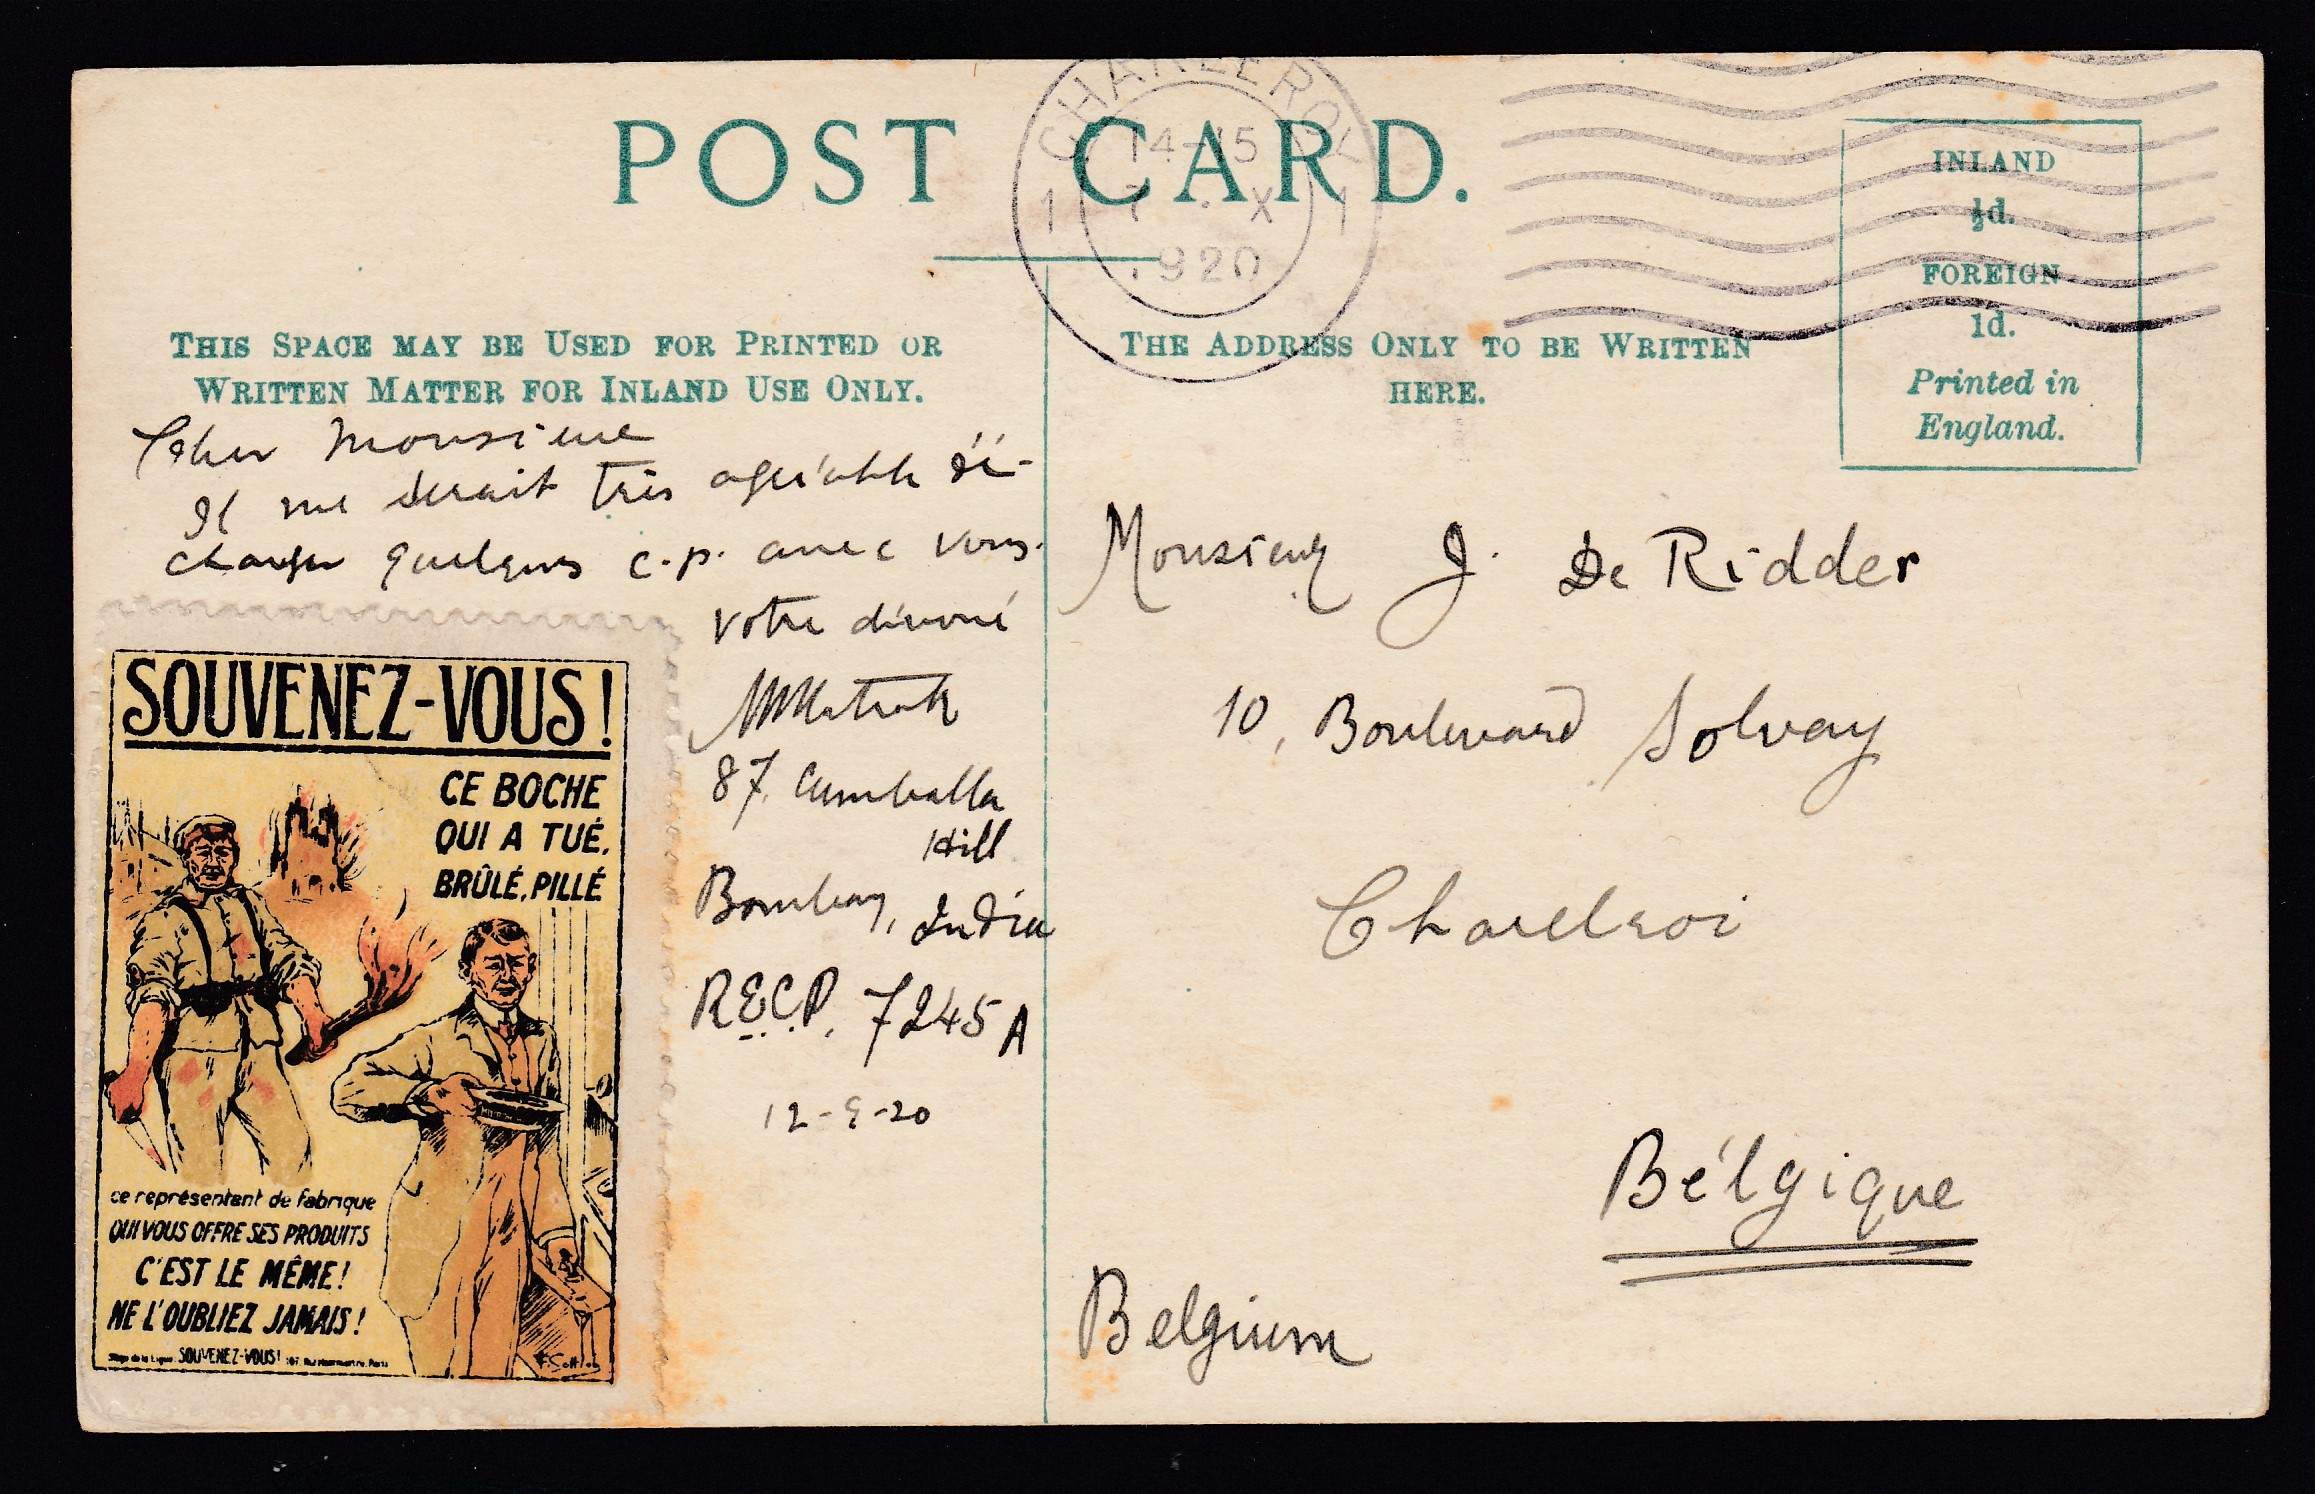 POST CARD.
CHARLEROY
14-15
1 7 · X 1
1920
INLAND
½d.
FOREIGN
1d.
Printed in
England.
THIS SPACE MAY BE USED FOR PRINTED OR
WRITTEN MATTER FOR INLAND USE ONLY.
THE ADDRESS ONLY TO BE WRITTEN
HERE.
Cher Monsieur
Il me serait très agréable d'é-
changer quelques c.p. avec vous.
votre dévoué
87 Cumballa
Hill
Bombay, India
R.E.C.P. 7245 A
12-9-20
SOUVENEZ-VOUS!
CE BOCHE
QUI A TUÉ,
BRÛLÉ, PILLÉ
ce représentant de fabrique
QUI VOUS OFFRE SES PRODUITS
C'EST LE MÊME!
NE L'OUBLIEZ JAMAIS!
Siège de la Ligue: SOUVENEZ-VOUS!
Monsieur J. De Ridder
10, Boulevard Solvay
Charleroi
Bélgique
Belgium